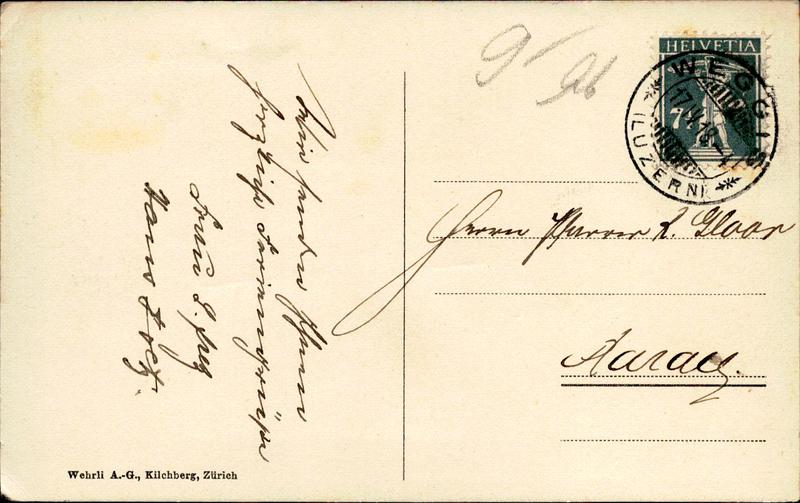 Wir senden Ihnen
herzliche Feriengrüsse
Hans
9 96
HELVETIA
7½
WEGGIS
(LUZERN)
Herrn Pfarrer R. Glaar
Aarau.
Wehrli A.-G., Kilchberg, Zürich